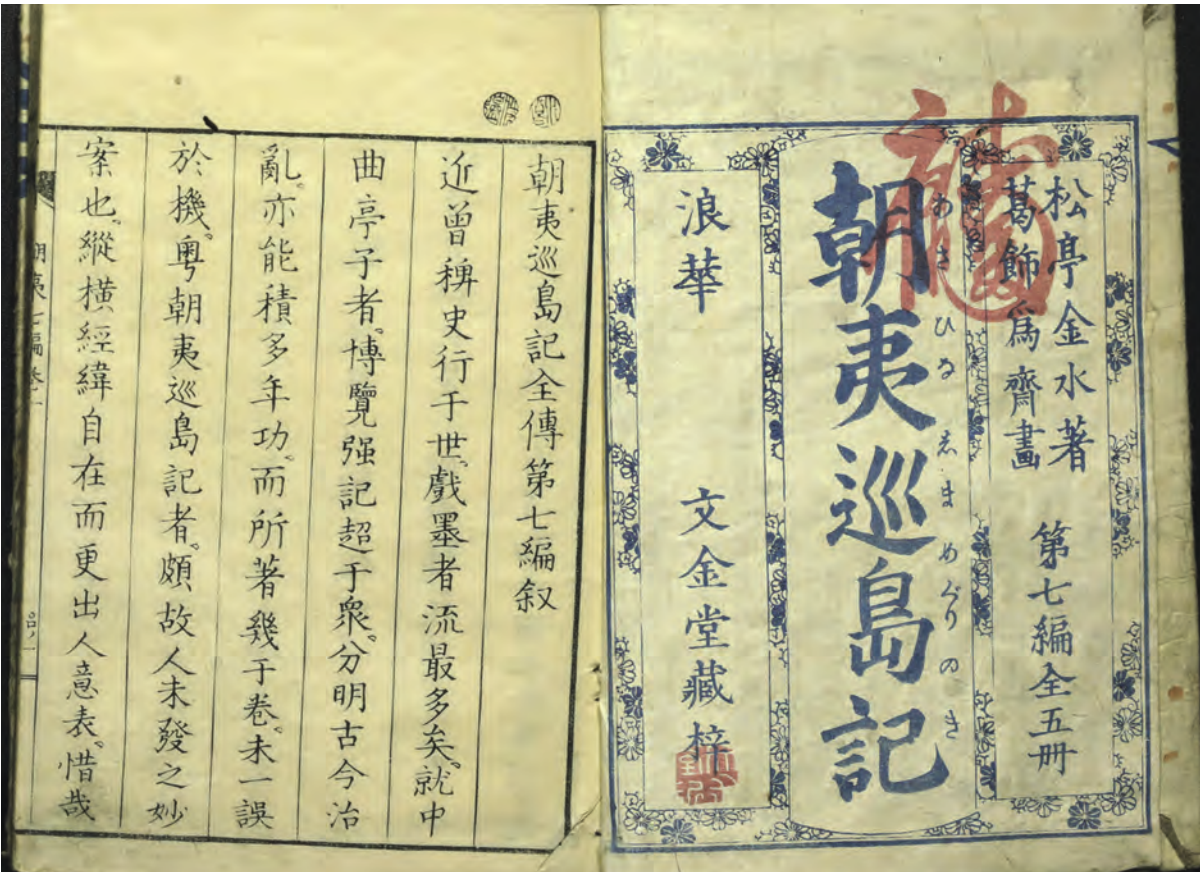 松亭金水著
葛飾爲齋畫
第七編全五冊
朝夷巡島記
あさひなしまめぐりのき
浪華 文金堂藏梓
朝夷巡島記全傳第七編叙
近曾稗史行于世。戲墨者流最多矣。就中
曲亭子者。博覽强記超于衆。分明古今治
亂。亦能積多年功。而所著幾于卷。未一誤
於機。粤朝夷巡島記者。頗故人未發之妙
案也。縱橫經緯自在而更出人意表。惜哉